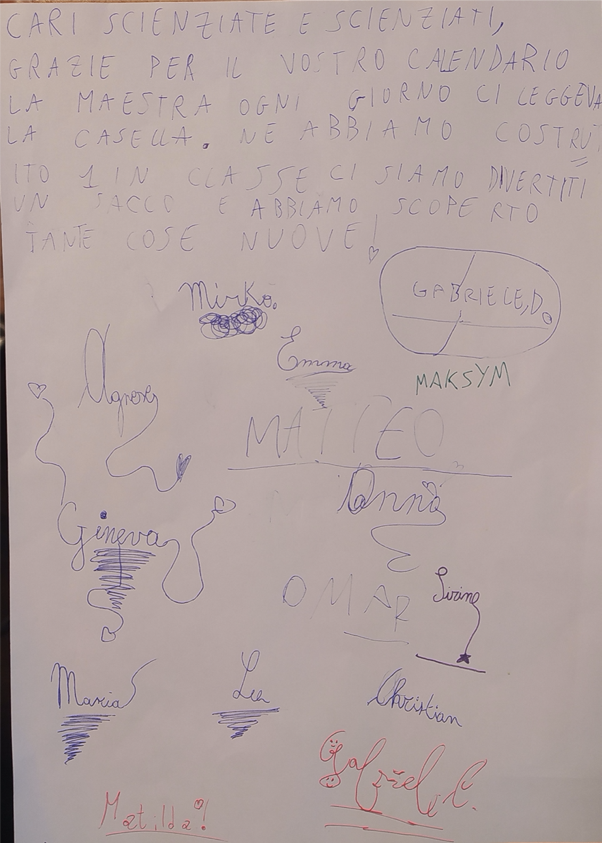 CARI SCIENZIATE E SCIENZIATI,
GRAZIE PER IL VOSTRO CALENDARIO
LA MAESTRA OGNI GIORNO CI LEGGEVA
LA CASELLA. NE ABBIAMO COSTRU
ITO 1 IN CLASSE CI SIAMO DIVERTITI
UN SACCO E ABBIAMO SCOPERTO
TANTE COSE NUOVE!
Mirko.
GABRIELE, D.
Emma
Agnese
MAKSYM
MATTEO
Anna
Ginevra
OMAR
Maria
Lea
Christian
Gabriele C.
Matilda!